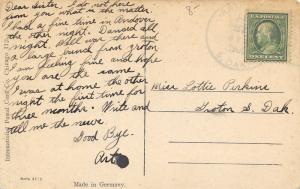 Dear Sister: I do not here
from you what is the matter.
had a fine time in Andover
the other night. Danced all
night. Well was there and
large crowd from groton
I am feeling fine and hope
you are the same.
I was at home the other
night the first time for
three months. Write and
tell me the news.
Good Bye.
Art
Miss Lottie Perkins
Groton S. Dak.
International Postal Card Co., Chicago, Ill.
Made in Germany.